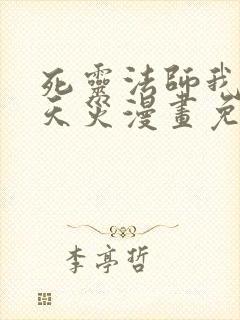 死靈法師我
天災漫畫免
李亭哲